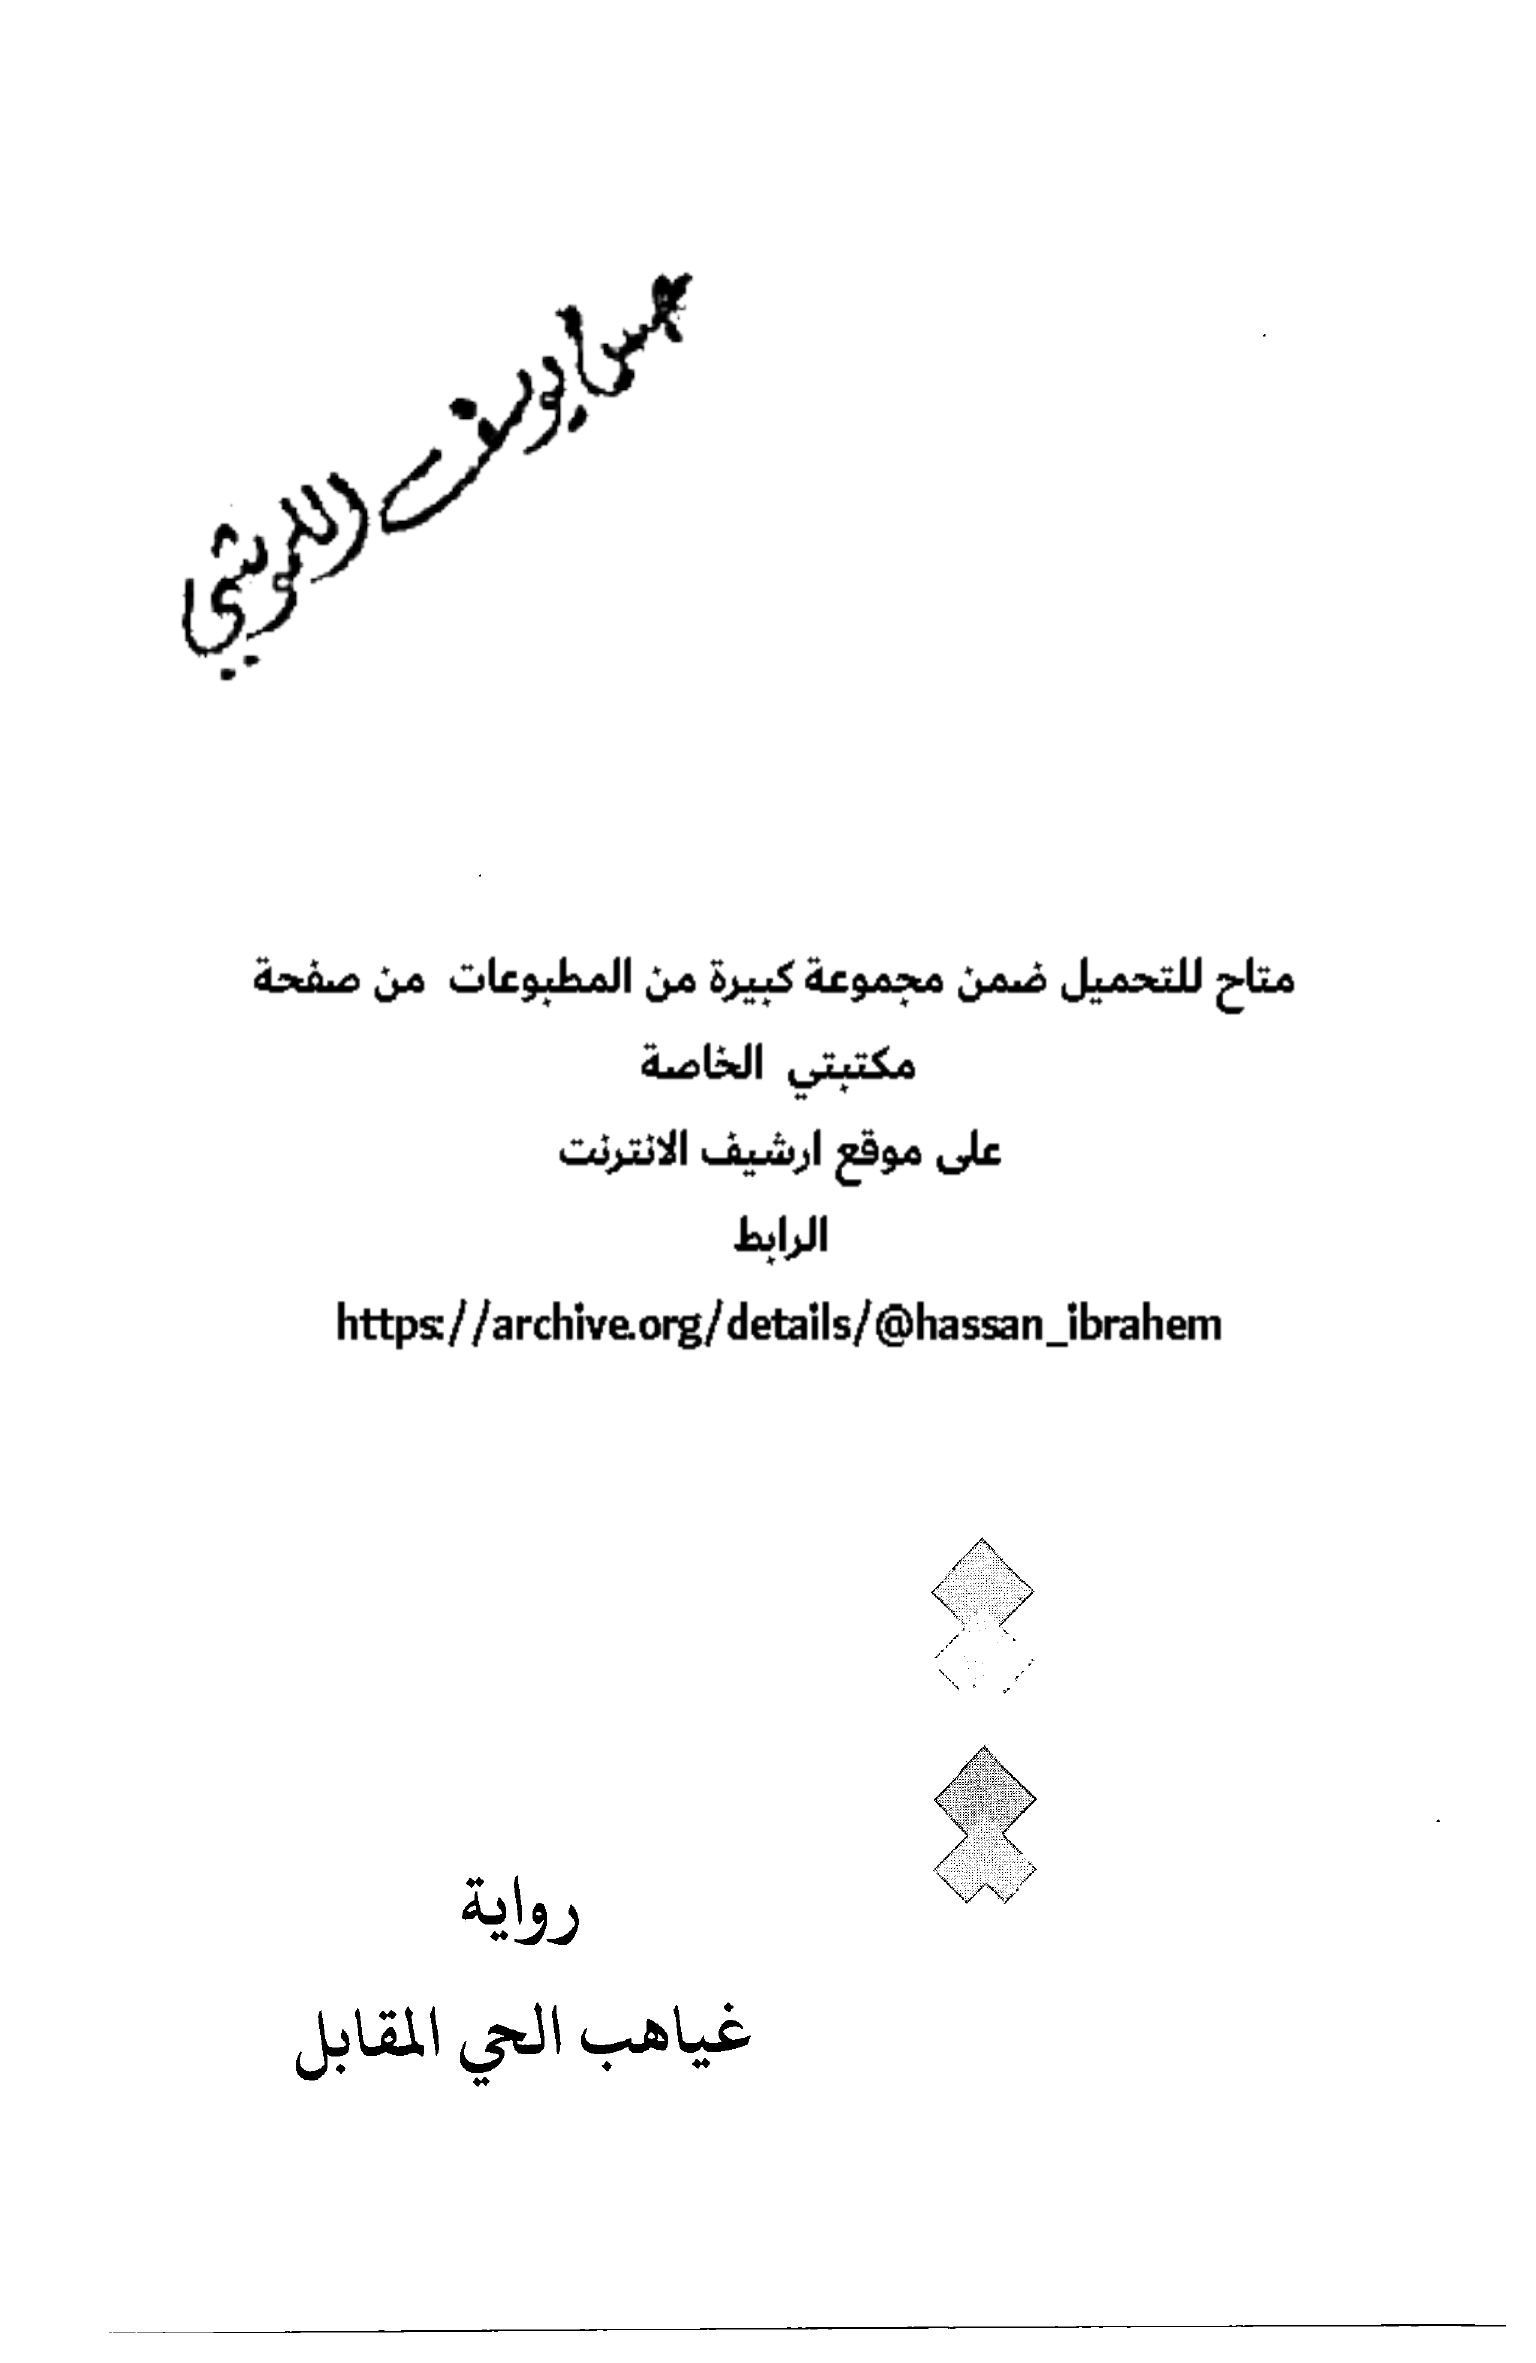 يوسف
متاح للتحميل ضمن مجموعة كبيرة من المطبوعات من صفحة
مكتبتي الخاصة
على موقع ارشيف الانترنت
الرابط
https://archive.org/details/@hassan_ibrahem
رواية
غياهب الحي المقابل